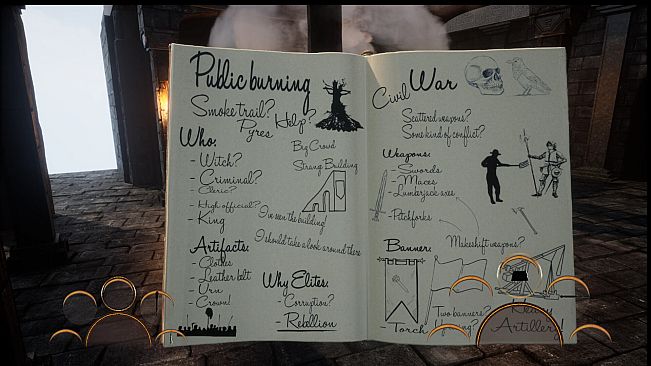 Public burning
Smoke trail? Help?
Pyres
Who:
- Witch?
- Criminal?
- Cleric?
- High official?
- King
Big Crowd
Strang Building
I've seen the building!
I should take a look around there
Artifacts:
- Clothes
- Leather belt
- Urn
- Crown!
Why Elites:
- Corruption?
- Rebellion
Civil War
Scattered weapons?
Some kind of conflict?
Weapons:
- Swords
- Maces
- Lumberjack axes
- Pitchforks
Makeshift weapons?
Banner:
- Torch
Two banners?
Heavy
Artillery!